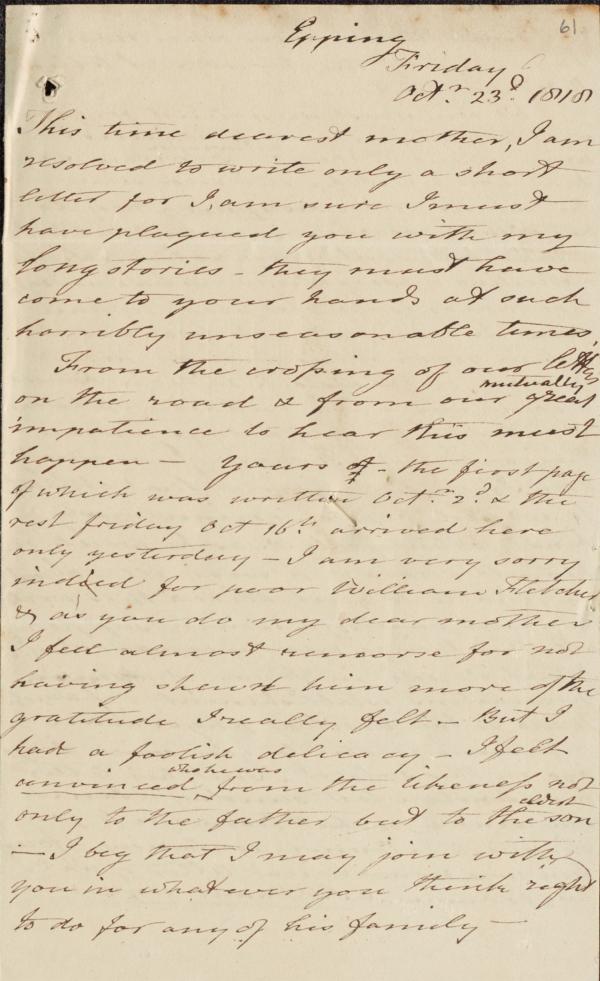 61
Epping
Friday
Octr. 23d. 1818
This time dearest mother, I am
resolved to write only a short
letter for I am sure I must
have plagued you with my
long stories - they must have
come to your hands at such
horribly unseasonable times
From the crossing of our letters
mutually
on the road & from our great
impatience to hear this must
happen — yours - the first page
of which was written Octr. 2d & the
rest friday Oct 16th arrived here
only yesterday — I am very sorry
indeed for poor William Fletcher
& as you do my dear mother
I feel almost remorse for not
having shewn him more of the
gratitude I really felt — But I
had a foolish delicacy — I felt
who he was
convinced, from the likeness not
eldest
only to the father but to the son
— I beg that I may join with
you in whatever you think right
to do for any of his family —